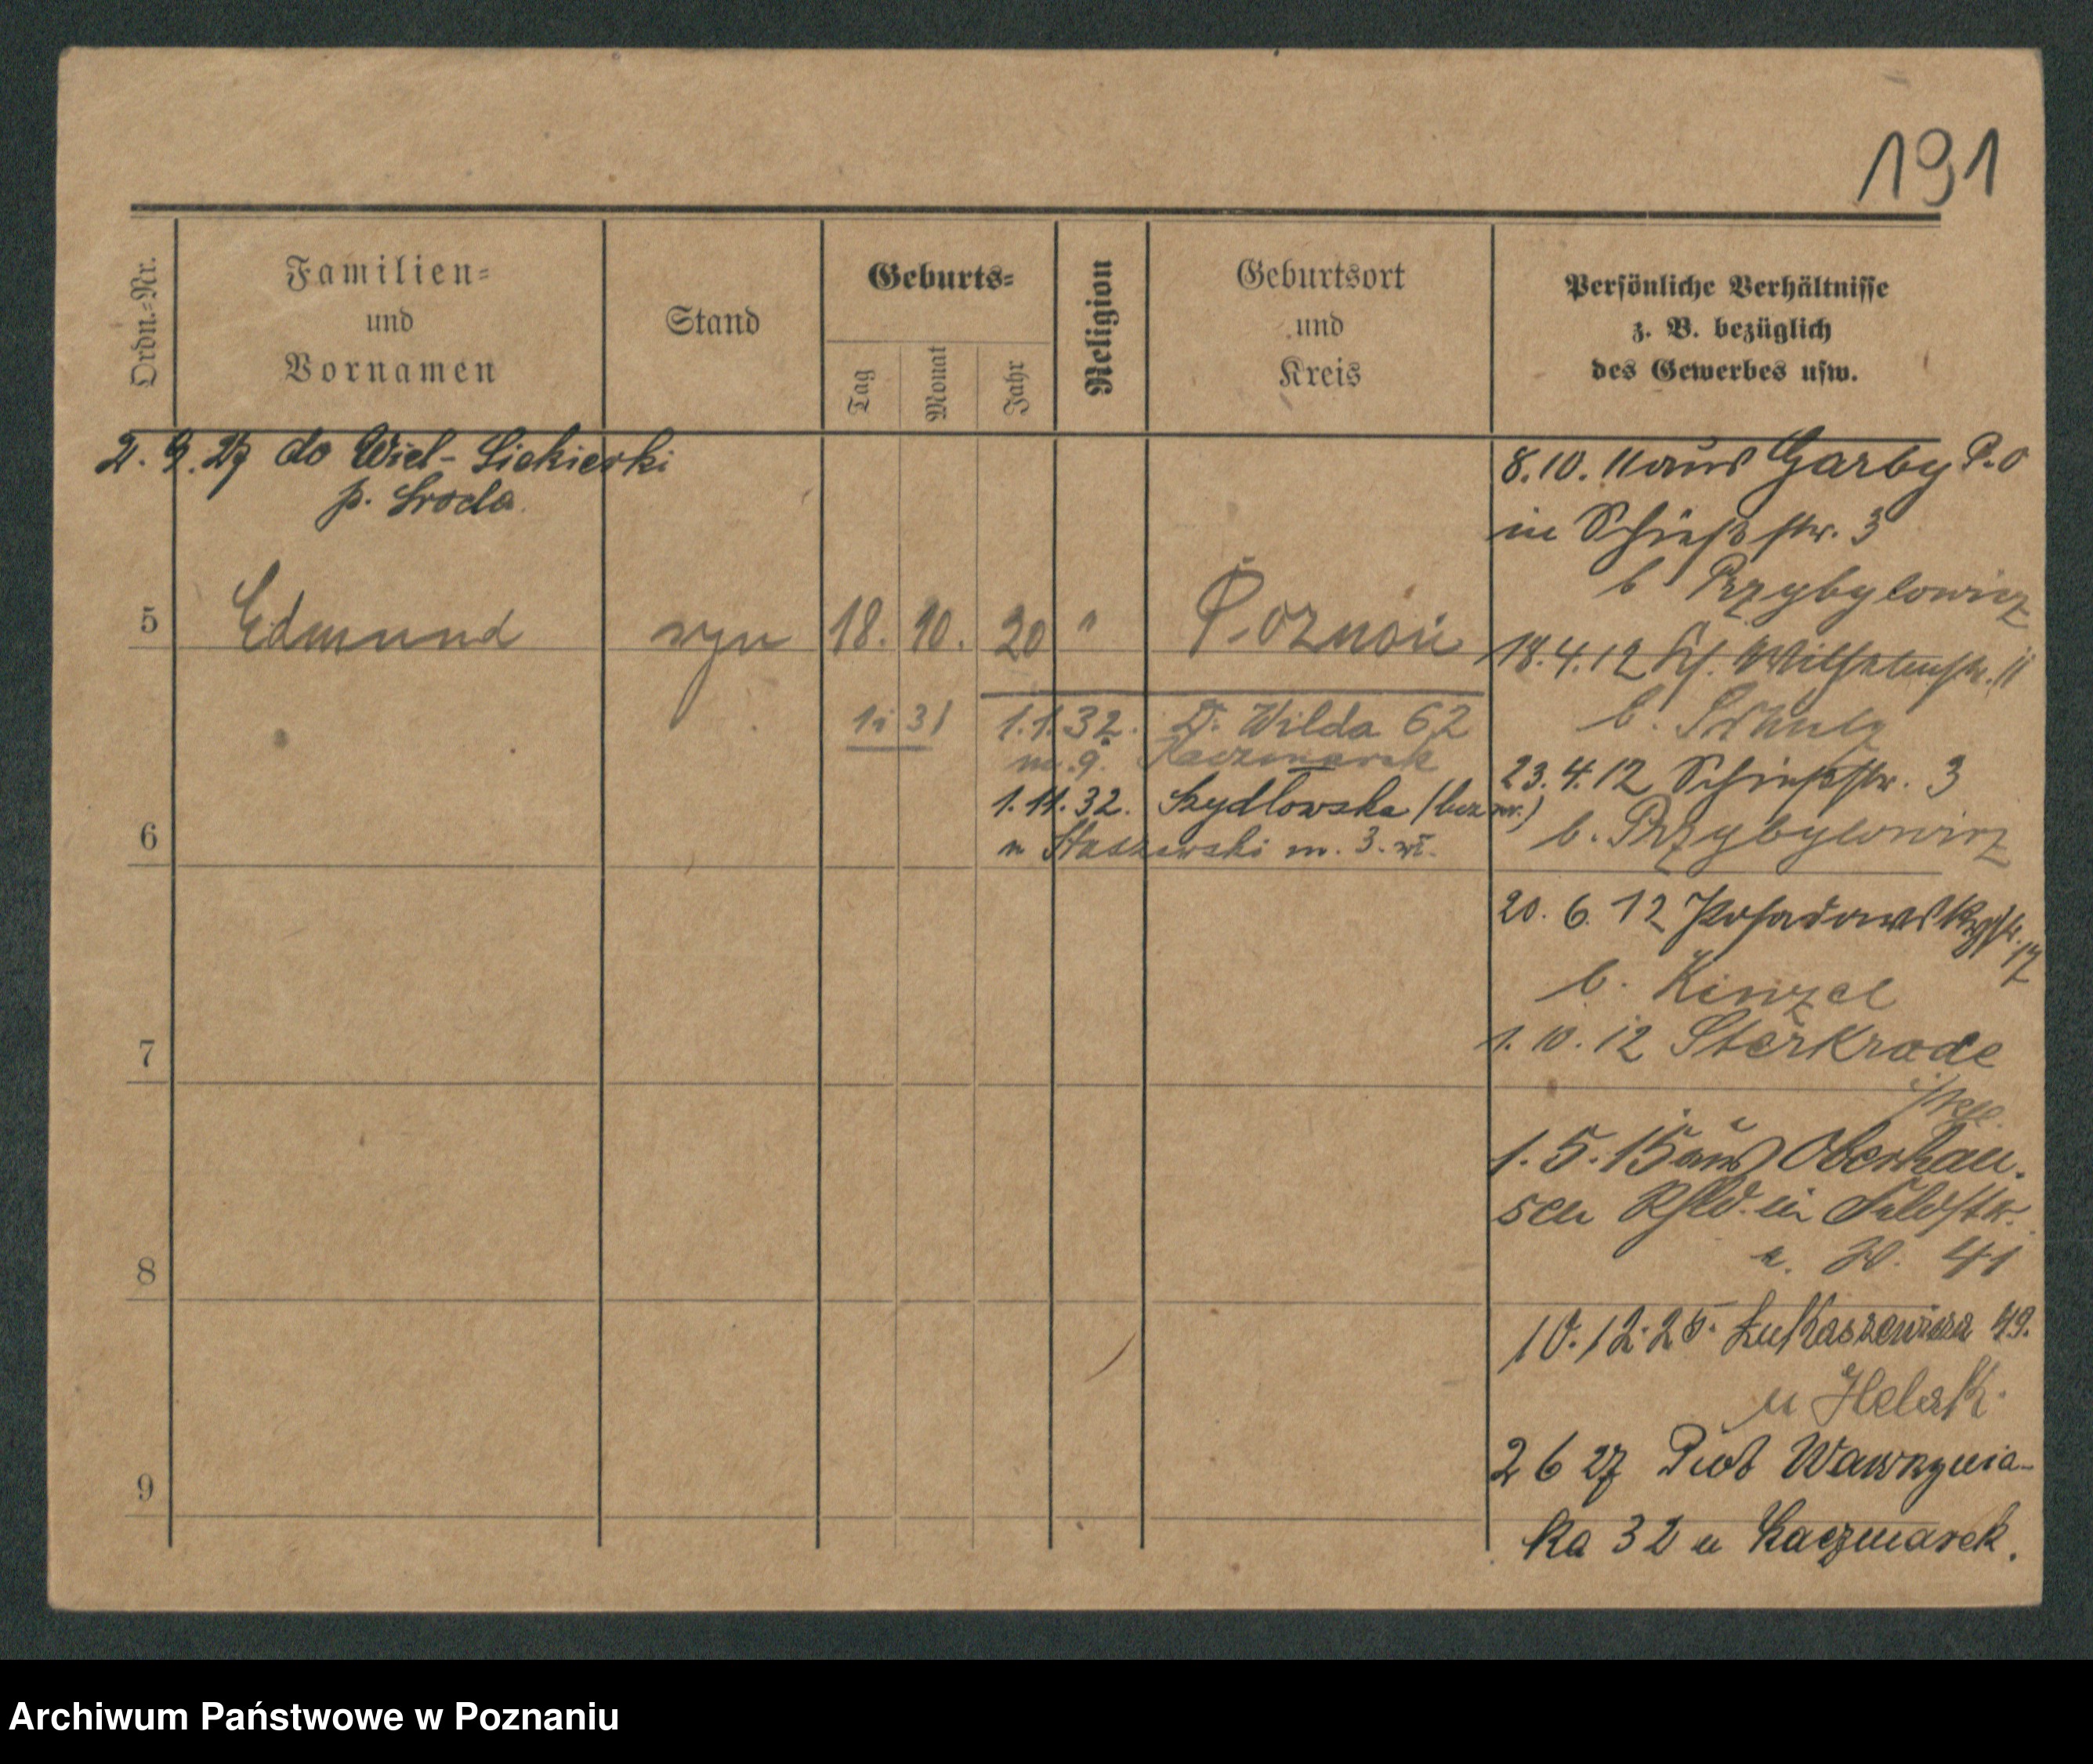 191
Ordn.=Nr.
Familien=
und
Vornamen
Stand
Geburts=
Tag
Monat
Jahr
Religion
Geburtsort
und
Kreis
Persönliche Verhältnisse
z. B. bezüglich
des Gewerbes usw.
2. 9. 27 do Wiel-Siekierki
p. Sroda.
5 Edmund syn 18. 10. 20 " Poznań
31 1.1.32. D. Wilda 62
m. 9. Kaczmarek
1.11.32. Szydlowska (bez zm.)
u Staszewski m. 3.
6
7
8
9
8.10.11 aus Garby P.O
in Schießstr. 3
b Przybylowicz
18.4.12 Wilhelmstr. 11
b. Schulz
23.4.12 Schießstr. 3
b. Przybylowicz
20. 6. 12 Posadowskystr. 17
b. Kinzel
1. 10. 12 Sterkrade
1. 5. 15 aus Oberhau-
sen Rhld. in Feldstr.
41
10.12.25. Łukaszewicza 49.
u Helak.
2 6 27 Piot Wawrzynia-
ka 32 u Kaczmarek.
Archiwum Państwowe w Poznaniu